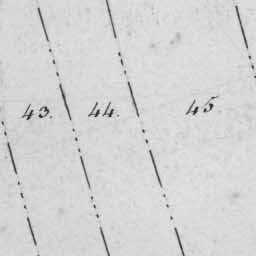 43. 44. 45.